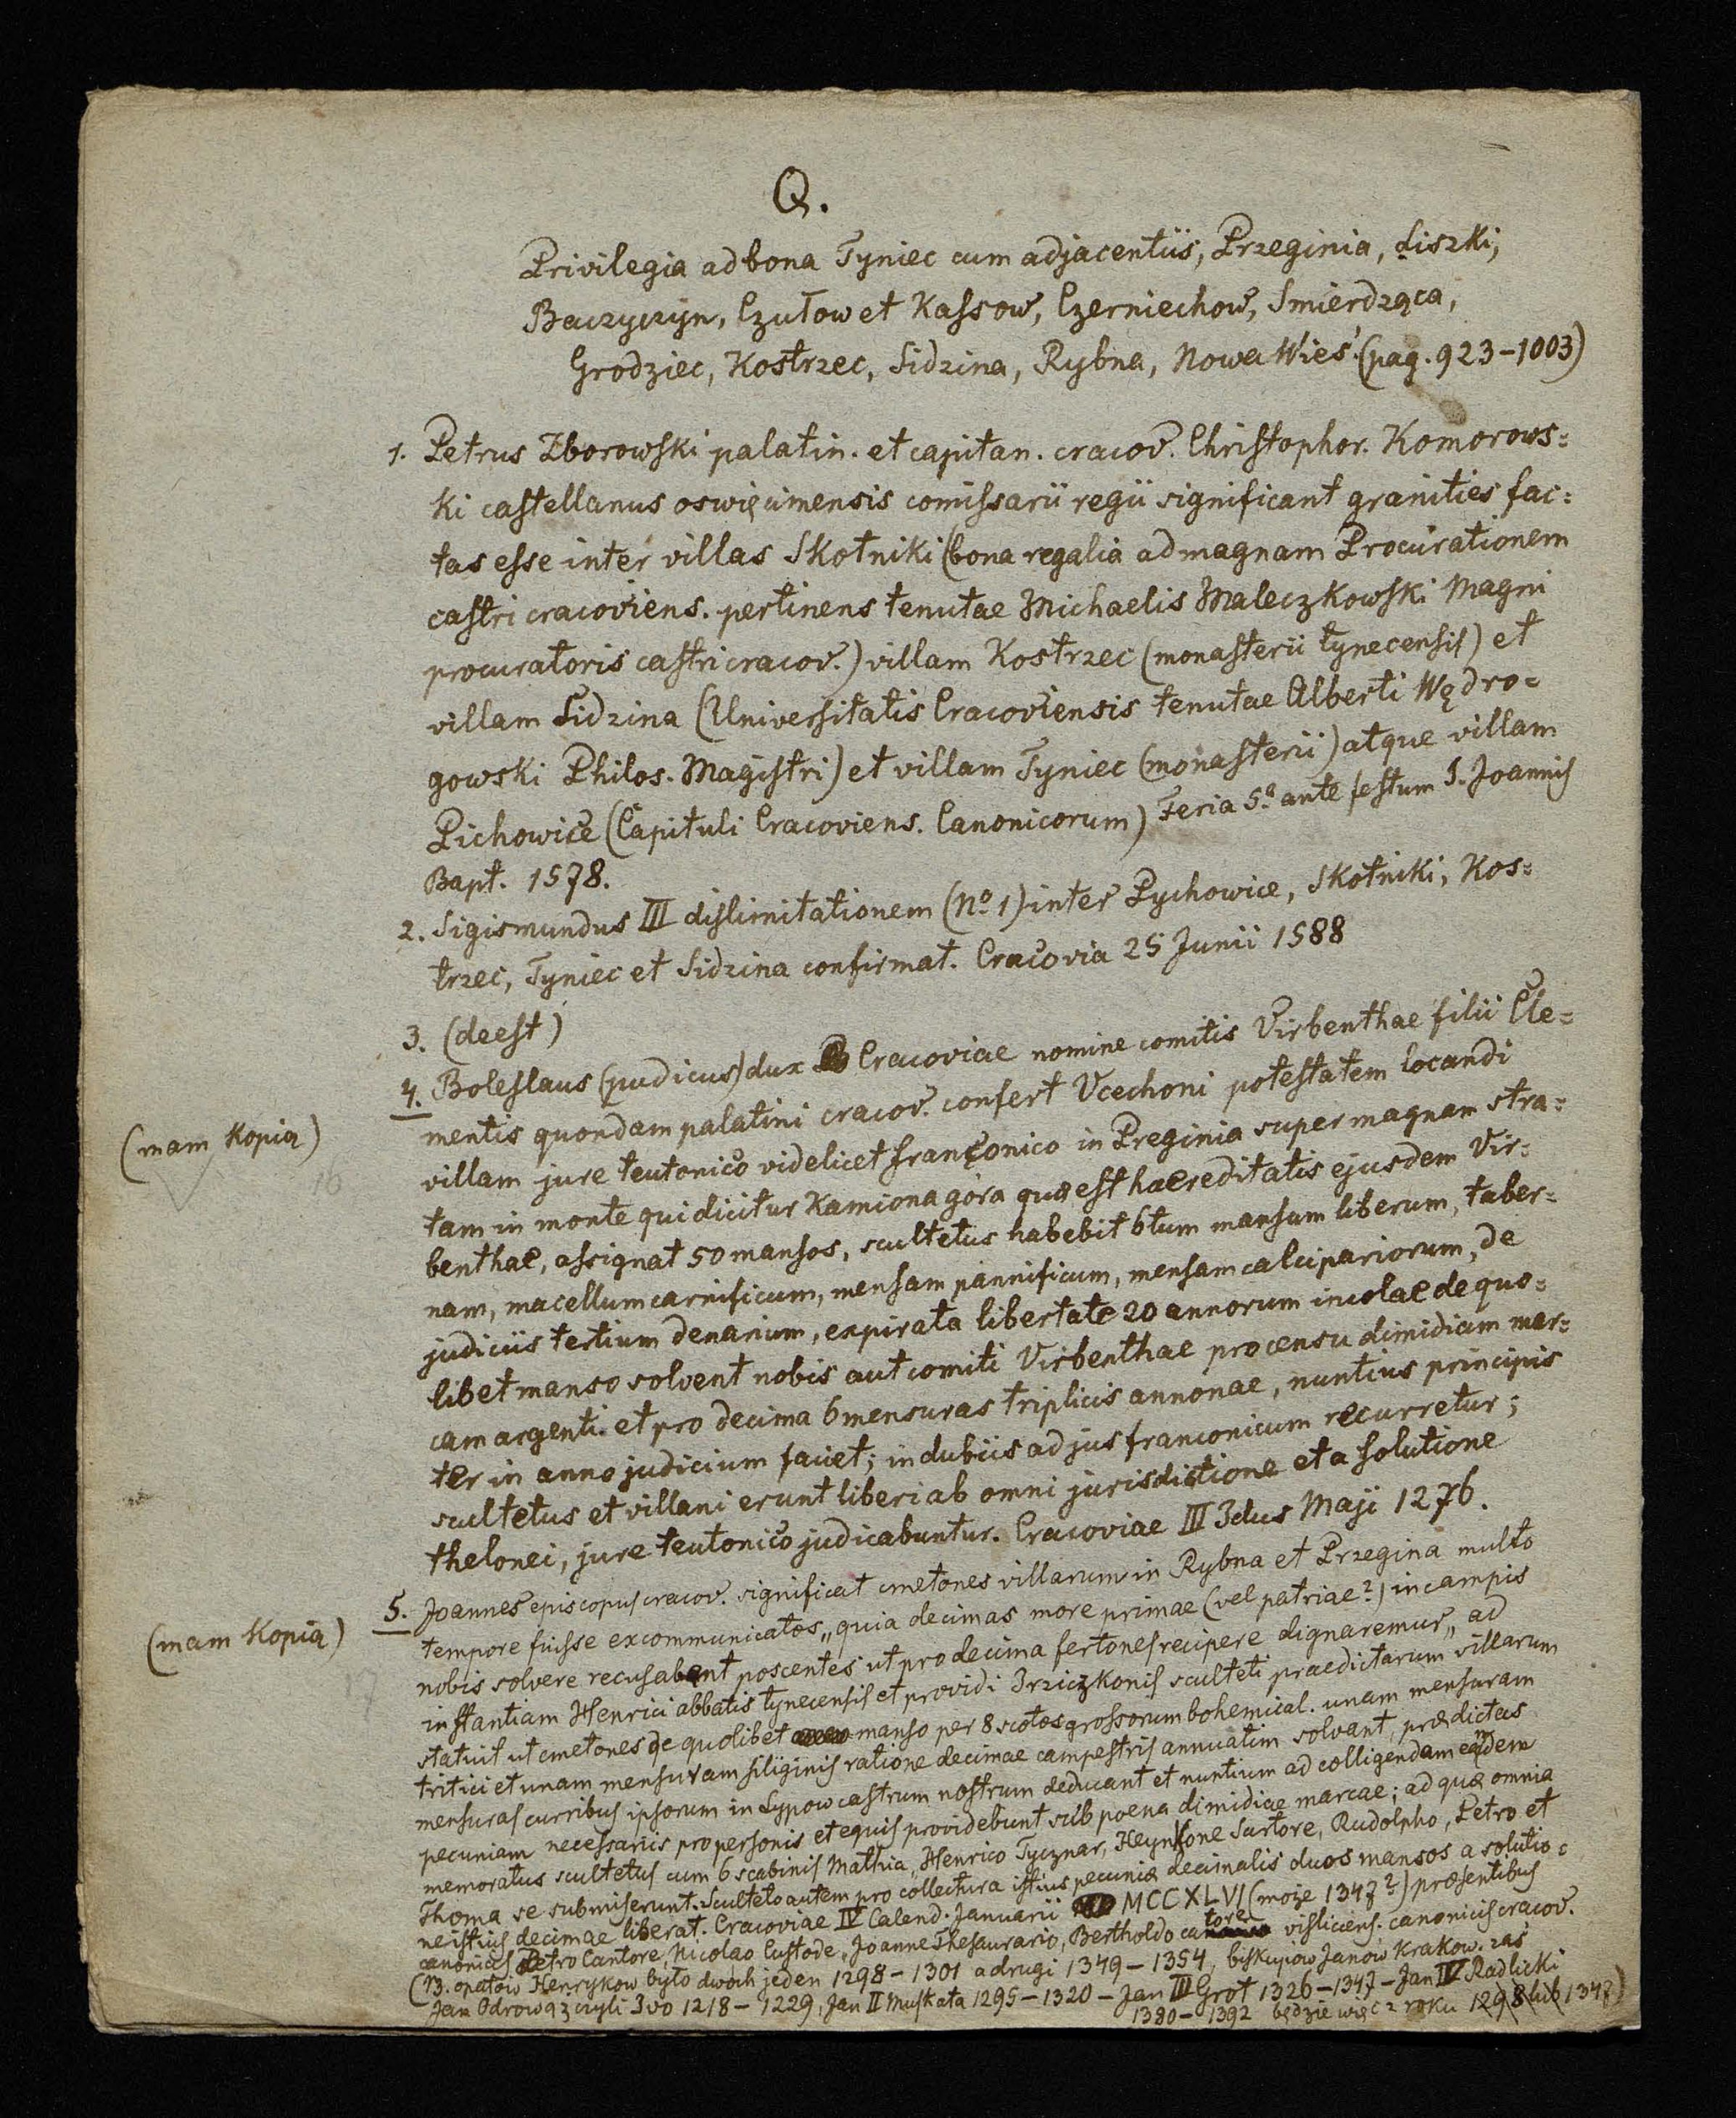 Q.
Privilegia ad bona Tyniec cum adjacentiis, Przeginia, Liszki,
Baczyczyn, Czułow et Kassow, Czerniechow, Smierdząca,
Grodziec, Kostrzec, Sidzina, Rybna, Nowa Wieś. (pag. 923-1003)
1. Petrus Zborowski palatin. et capitan. cracov. Christophor. Komorows=
ki castellanus oswięcimensis comissarii regii significant granities fac=
tas esse inter villas Skotniki (bona regalia ad magnam Procurationem
castri cracoviens. pertinens tenutae Michaelis Maleczkowski Magni
procuratoris castri cracov.) villam Kostrzec (monasterii tynecensis) et
villam Sidzina (Universitatis Cracoviensis tenutae Alberti Wędro=
gowski Philos. Magistri) et villam Tyniec (monasterii) atque villam
Pichowice (Capituli Cracoviens. Canonicorum) Feria 5ª ante festum S. Joannis
Bapt. 1578.
2. Sigismundus III dislimitationem (No 1) inter Pychowice, Skotniki, Kos=
trzec, Tyniec et Sidzina confirmat. Cracovia 25 Junii 1588
3. (deest)
4. Boleslaus (pudicus) dux Cracoviae nomine comitis Virbenthae filii Cle=
mentis quondam palatini cracov. confert Vcechoni potestatem locandi
(mam Kopią)
villam jure teutonico videlicet franconico in Preginia super magnam stra=
16
tam in monte qui dicitur Kamiona góra quæ est haereditatis ejusdem Vir=
benthae, assignat 50 mansos, scultetus habebit 6tum mansum liberum, taber=
nam, macellum carnificum, mensam pannificum, mensam calcipariorum, de
judiciis tertium denarium, expirata libertate 20 annorum incolae de quo=
libet manso solvent nobis aut comiti Virbenthae pro censu dimidiam mar=
cam argenti. et pro decima 6 mensuras triplicis annonae, nuntius principis
ter in anno judicium faciet; in dubiis ad jus franconicum recurretur;
scultetus et villani erunt liberi ab omni jurisdictione et a solutione
thelonei, jure teutonico judicabuntur. Cracoviae III Idus Maji 1276.
5. Joannes episcopus cracov. significat cmetones villarum in Rybna et Przegina multo
(mam Kopią)
tempore fuisse excommunicatos „quia decimas more primae (vel patriae?) in campis
17
nobis solvere recusabant poscentes ut pro decima fertones recipere dignaremur„ ad
instantiam Henrici abbatis tynecensis et providi Irziczkonis sculteti praedictarum villarum
statuit ut cmetones de quolibet manso per 8 scotos grossorum bohemical. unam mensuram
tritici et unam mensuram siliginis ratione decimae campestris annuatim solvant, prædictas
mensuras curribus ipsorum in Lypow castrum nostrum deducant et nuntium ad colligendam eamdem
pecuniam necessariis pro personis et equis providebunt sub poena dimidiae marcae; ad quæ omnia
memoratus scultetus cum 6 scabinis Mathia, Henrico Tycznar, Heynkone Sartore, Rudolpho, Petro et
Thoma se submiserunt. Sculteto autem pro collectura istius pecuniæ decimalis duos mansos a solutio=
ne istius decimae liberat. Cracoviae IV Calend. Januarii MCCXLVI (może 1347?) præsentibus
canonicis Petro Cantore, Nicolao Custode, Joanne Thesaurario, Bertholdo cantore visliciens. canonicis cracov.
(NB. opatów Henrykow było dwóch jeden 1298 - 1301 a drugi 1349 - 1354, biskupów Janów krakow. zaś
Jan Odrowąż czyli Ivo 1218 - 1229, Jan II Muskata 1295 - 1320 - Jan III Grot 1326 - 1347 - Jan IV Radlicki
1380 - 1392 będzie więc z roku 1298 lub 1347)